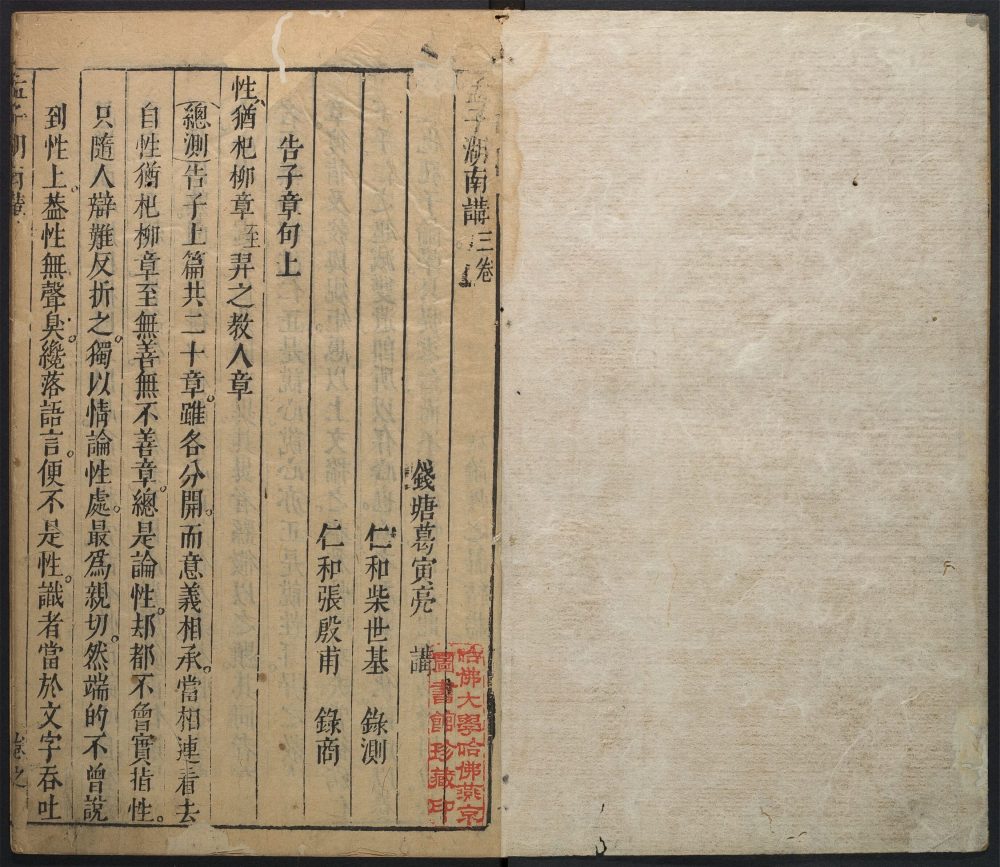 孟子湖南講三卷
錢塘葛寅亮 講
仁和柴世基 錄測
仁和張殷甫 錄商
告子章句上
性猶杞柳章至羿之教人章
總測告子上篇共二十章。雖各分開。而意義相承。當相連看去
自性猶杞柳章至無善無不善章。總是論性。却都不曾實指性。
只隨人辯難反折之。獨以情論性處。最爲親切。然端的不曾說
到性上。葢性無聲臭。纔落語言。便不是性。識者當於文字吞吐
孟子湖南講
哈佛大學哈佛燕京
圖書館珍藏印